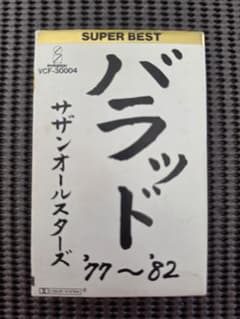 SUPER BEST
VCF-30004
バラッド
サザンオールスターズ
'77〜'82